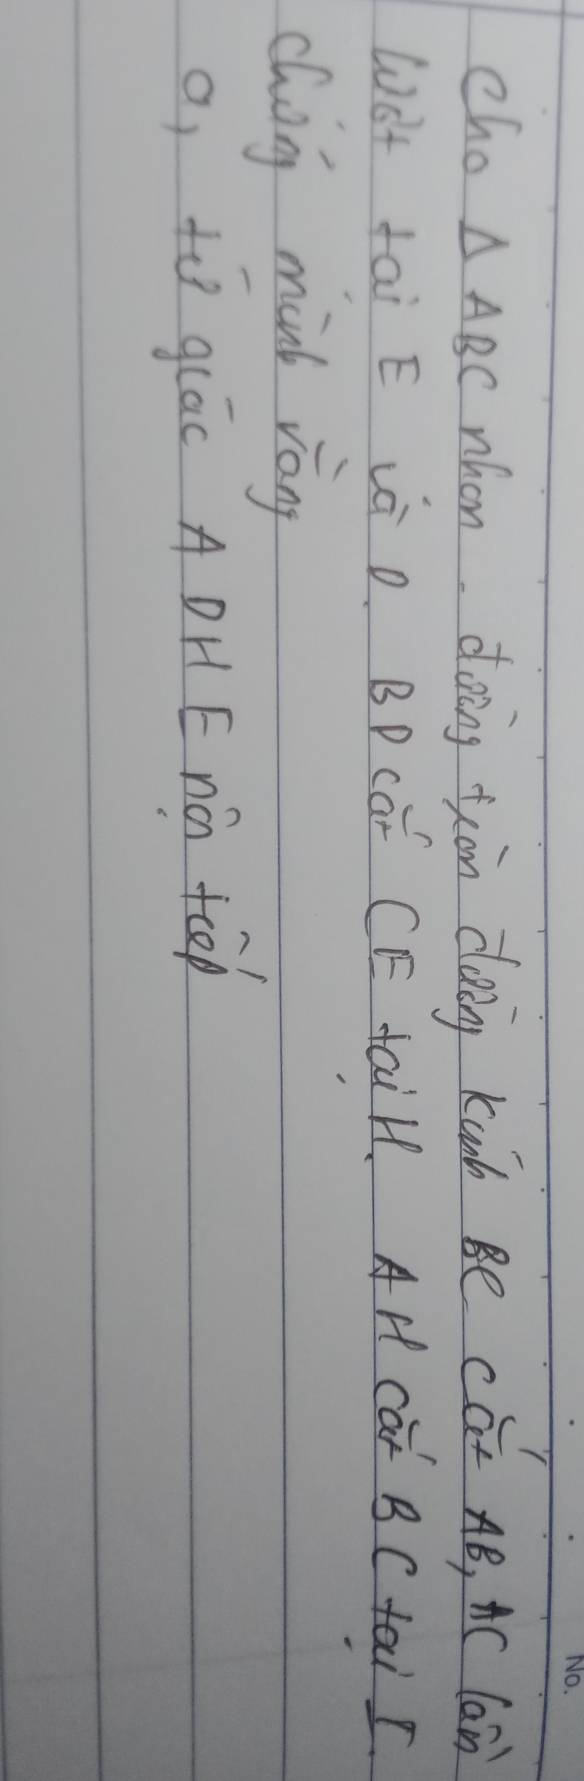 No.
Cho Δ ABC nhọn. đường tròn đường kính BC cắt AB, AC lần
lượt tại E và D. BD cắt CE tại H. AH cắt BC tại I.
chứng minh rằng
a, tứ giác ADHE nội tiếp